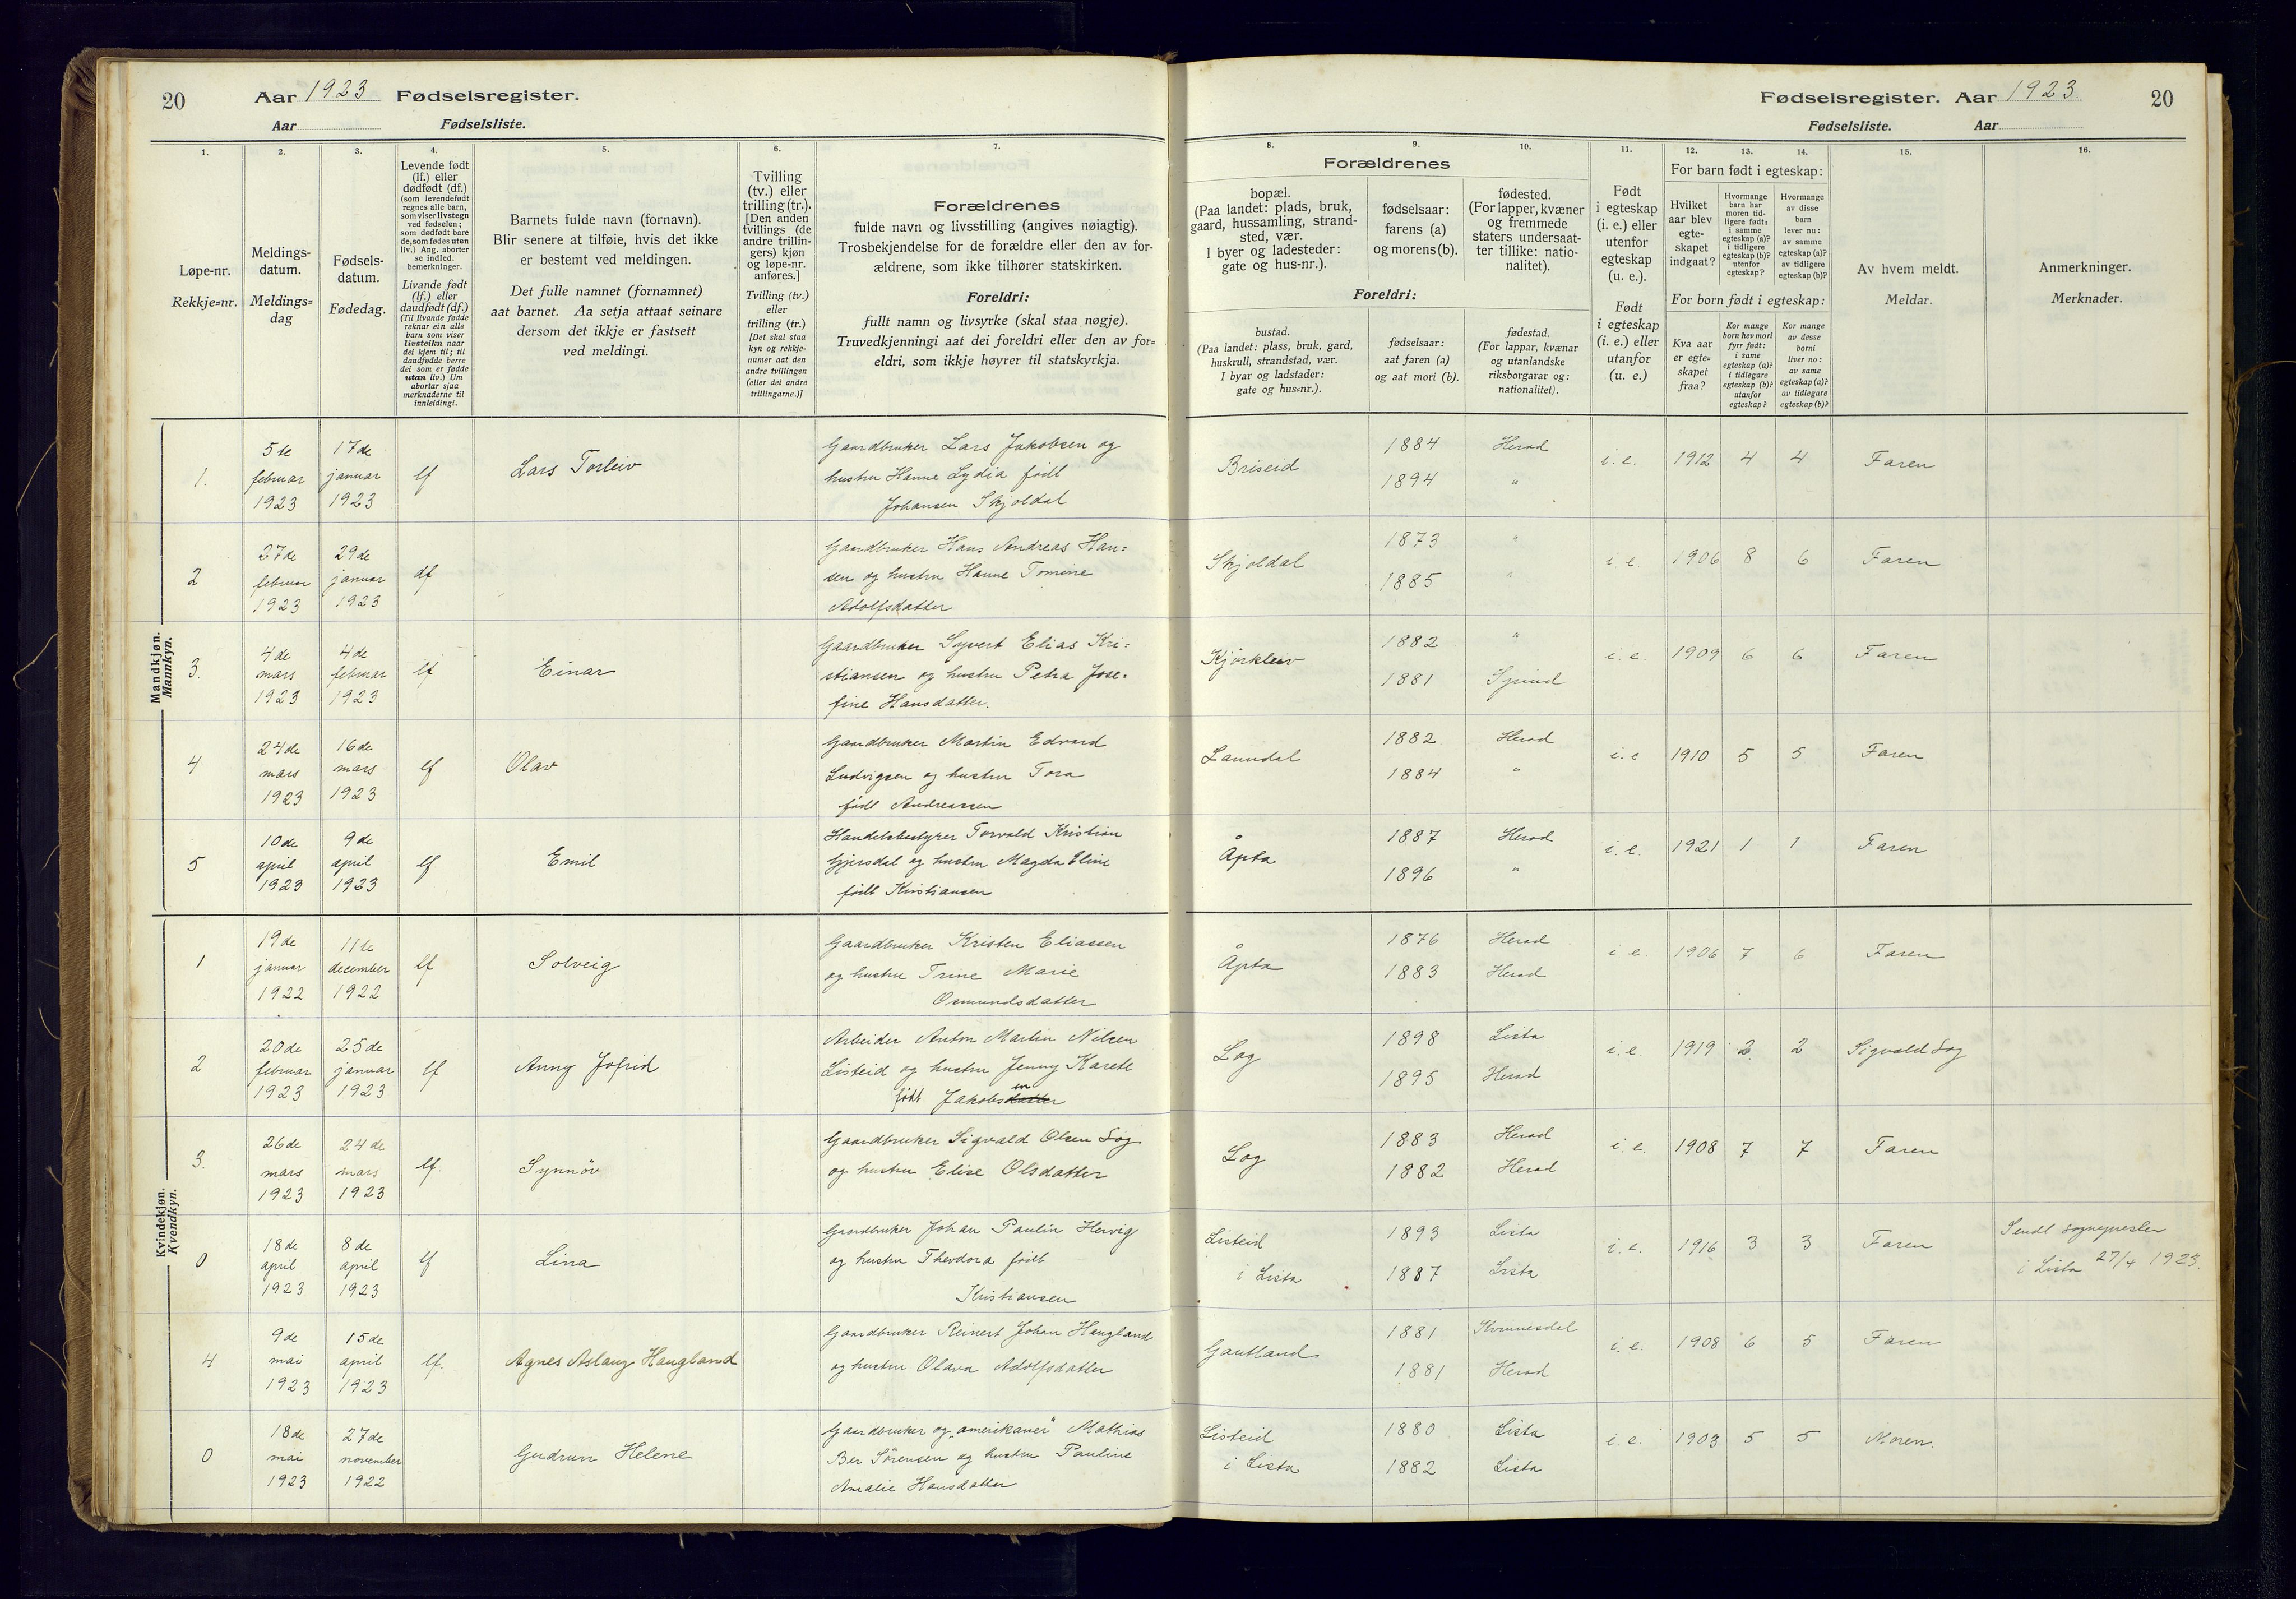 20
Aar 1923 Fødselsregister.
Aar
Fødselsliste.
Fødselsregister. Aar 1923.
20
Fødselsliste.
Aar
1.
2.
3.
4.
5.
6.
7.
8.
9.
10.
11.
12.
13.
14.
15.
16.
Løpe-nr.
Rekkje=nr.
Meldings-
datum.
Meldings=
dag
Fødsels-
datum.
Fødedag.
Levende født
(lf.) eller
dødfødt (df.)
(som levendefødt
regnes alle barn,
som viser livstegn
ved fødselen;
som dødfødt bare
de, som fødes uten
liv.) Ang. aborter
se indled.
bemerkninger.
Livande født
(lf.) eller
daudfødt (df.)
(Til livande fødde
reknar ein alle
barn som viser
livsteikn naar
dei kjem til; til
daudfødde berre
dei som er fødde
utan liv.) Um
abortar sjaa
merknaderne til
innleidingi.
Barnets fulde navn (fornavn).
Blir senere at tilføie, hvis det ikke
er bestemt ved meldingen.
Det fulle namnet (fornamnet)
aat barnet. Aa setja attaat seinare
dersom det ikkje er fastsett
ved meldingi.
Tvilling
(tv.) eller
trilling (tr.).
[Den anden
tvillings (de
andre trillin-
gers) kjøn
og løpe-nr.
anføres.]
Tvilling (tv.)
eller
trilling (tr.)
[Det skal staa
kyn og rekkje-
numer aat den
andre tvillingen
(eller dei andre
trillingarne.)]
Forældrenes
fulde navn og livsstilling (angives nøiagtig).
Trosbekjendelse for de forældre eller den av for-
ældrene, som ikke tilhører statskirken.
Foreldri:
fullt namn og livsyrke (skal staa nøgje).
Truvedkjenningi aat dei foreldri eller den av for=
eldri, som ikkje høyrer til statskyrkja.
Forældrenes
bopæl.
(Paa landet: plads, bruk,
gaard, hussamling, strand-
sted, vær.
I byer og ladesteder:
gate og hus-nr.).
fødselsaar:
farens (a)
og morens (b).
fødested.
(For lapper, kvæner
og fremmede
staters undersaat-
ter tillike: natio-
nalitet).
Foreldri:
bustad.
(Paa landet: plass, bruk, gard,
huskrull, strandstad, vær.
I byar og ladstader:
gate og hus=nr.).
fødselsaar:
aat faren (a)
og aat mori (b).
fødestad.
(For lappar, kvænar
og utanlandske
riksborgarar og:
nationalitet).
Født
i egteskap
(i. e.) eller
utenfor
egteskap
(u. e.).
Født
i egteskap
(i. e.) eller
utanfor
(u. e.)
For barn født i egteskap:
Hvilket
aar blev
egte-
skapet
indgaat?
Hvormange
barn har
moren tid-
ligere født:
i samme
egteskap (a)?
i tidligere
egteskap (b)?
utenfor
egteskap?
Hvormange
av disse
barn
lever nu:
av samme
egteskap (a)?
av tidligere
egteskap (b)?
For born født i egteskap:
Kva aar
er egte=
skapet
fraa?
Kor mange
born hev mori
fyrr født:
i same
egteskap (a)?
i tidlegare
egteskap (b)?
utanfor
egteskap?
Kor mange
av desse
borni
liver no:
av same
egteskap (a)?
av tidlegare
egteskap (b)?
Av hvem meldt.
Meldar.
Anmerkninger.
Merknader.
Mandkjøn.
Mannkyn.
1.
5te
februar
1923
17de
januar
1923
lf
Lars Torleiv
Gaardbruker Lars Jakobsen og
hustru Hanne Lydia født
Johansen Skjoldal
Briseid
1884
1894
Herad
"
i. e.
1912
4
4
Faren
2
27de
februar
1923
29de
januar
1923
df
Gaardbruker Hans Andreas Han=
sen og hustru Hanne Tomine
Adolfsdatter
Skjoldal
1873
1885
"
"
i. e.
1906
8
6
Faren
3.
4de
mars
1923
4de
februar
1923
lf
Einar
Gaardbruker Syvert Elias Kri=
stiansen og hustru Petra Jose=
fine Hansdatter.
Kjørkleiv
1882
1881
"
Spind
i. e.
1909
6
6
Faren
4
24de
mars
1923
16de
mars
1923
lf
Olav
Gaardbruker Martin Edvard
Ludvigsen og hustru Tora
født Andreassen
Laundal
1882
1884
Herad
"
i. e
1910
5
5
Faren
5
10de
april
1923
9de
april
1923
lf
Emil
Handelsbestyrer Torvald Kristian
Gjersdal og hustru Magda Eline
født Kristiansen
Åpta
1887
1896
Herad
"
i. e.
1921
1
1
Faren
Kvindekjøn.
Kvendkyn.
1
19de
januar
1922
11te
december
1922
lf
Solveig
Gaardbruker Kristen Eliassen
og hustru Trine Marie
Osmundsdatter
Åpta
1876
1883
Herad
Herad
i. e.
1906
7
6
Faren
2
20de
februar
1923
25de
januar
1923
lf
Anny Jofrid
Arbeider Anton Martin Nilsen
Listeid og hustru Jenny Karete
født Jakobsdatter
en
Log
1898
1895
Lista
Herad
i. e.
1919
2
2
Sigvald Log
3.
26de
mars
1923
24de
mars
1923
lf.
Synnøv
Gaardbruker Sigvald Olsen Log
og hustru Elise Olsdatter
Log
1883
1882
Herad
Herad
i. e.
1908
7
7
Faren
0
18de
april
1923
8de
april
1923
lf
Lina
Gaardbruker Johan Paulin Hervig
og hustru Theodora født
Kristiansen
Listeid
i Lista
1893
1887
Lista
Lista
i. e.
1916
3
3
Faren
Sendt sognepresten
i Lista 27/4 1923.
4
9de
mai
1923
15de
april
1923
lf.
Agnes Aslaug Haugland
Gaardbruker Reinert Johan Haugland
og hustru Olava Adolfsdatter
Gautland
1881
1881
Kvinnesdal
Herad
i. e.
1908
6
5
Faren
0
18de
mai
1923
27de
november
1922
Gudrun Helene
Gaardbruker og „amerikaner" Mathias
Ber Sørensen og hustru Pauline
Amalie Hansdatter
Listeid
i Lista
1880
1882
Lista
Lista
i. e.
1903
5
5
Moren.